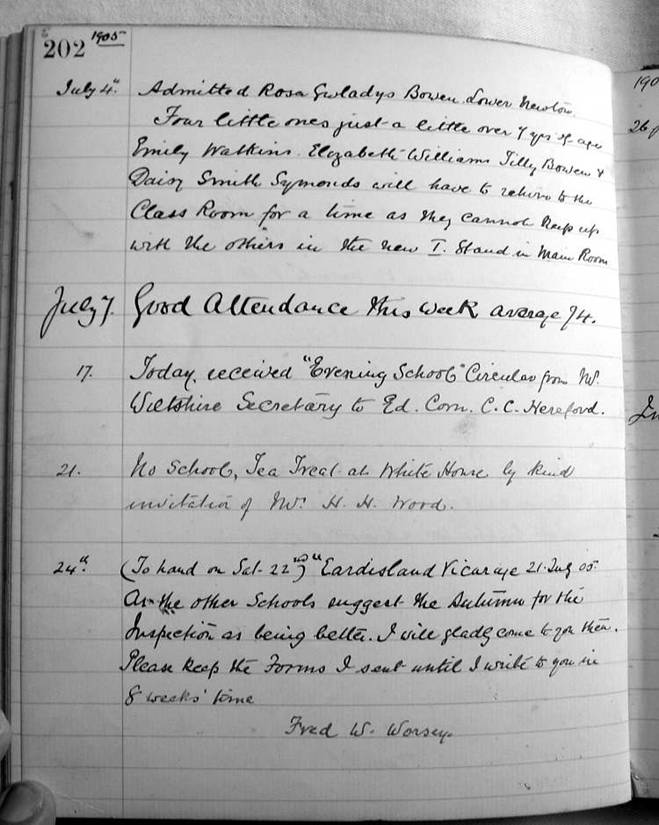 202 1905
July 4th. Admitted Rosa Gwladys Bowen Lower Newton.
Four little ones just a little over 7 yrs of age
Emily Watkins. Elizabeth Williams Tilly Bowen &
Daisy Smith Symonds will have to return to the
Class Room for a time as they cannot keep up
with the others in the new I. Stand in Main Room
July 7. Good Attendance this week average 74.
17. Today received "Evening School" Circular from Mr.
Wiltshire Secretary to Ed. Com. C.C. Hereford.
21. No School, Tea Treat at White House by kind
invitation of Mr. H. H. Wood.
24th. (To hand on Sat. 22nd) "Eardisland Vicarage 21. July 05.
As the other Schools suggest the Autumn for the
Inspection as being better. I will gladly come to you then.
Please keep the Forms I sent until I write to you in
8 weeks' time
Fred W. Worsey.
190
26